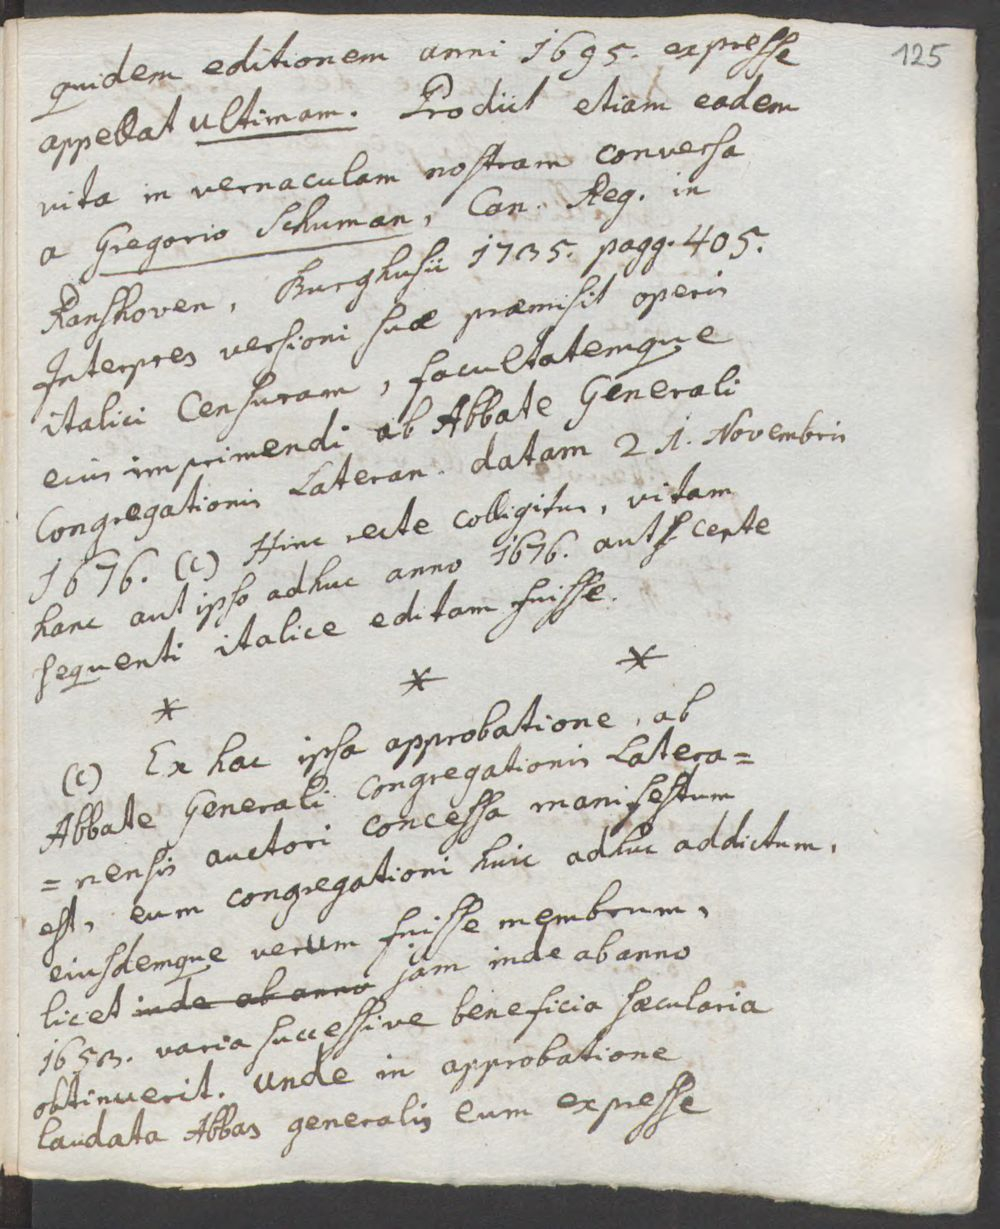 125
quidem editionem anni 1695. expresse
appellat ultimam. Prodiit etiam eadem
vita in vernaculam nostram conversa
a Gregorio Schuman, Can. Reg. in
Ranshoven, Burghusii 1735. pagg. 405.
Interpres versioni suæ præmisit operis
italici Censuram, facultatemque
eius imprimendi ab Abbate Generali
Congregationis Lateran. datam 21. Novembris
1676. (c) Hinc recte colligitur, vitam
hanc aut ipso adhuc anno 1676. aut certe
sequenti italice editam fuisse.
* * *
(c) Ex hac ipsa approbatione, ab
Abbate Generali Congregationis Latera=
=nensis auctori concessa manifestum
est, eum congregationi huic adhuc addictum,
eiusdemque verum fuisse membrum,
licet inde ab anno jam inde ab anno
1653. varia successive beneficia sæcularia
obtinuerit. Unde in approbatione
laudata Abbas generalis eum expresse